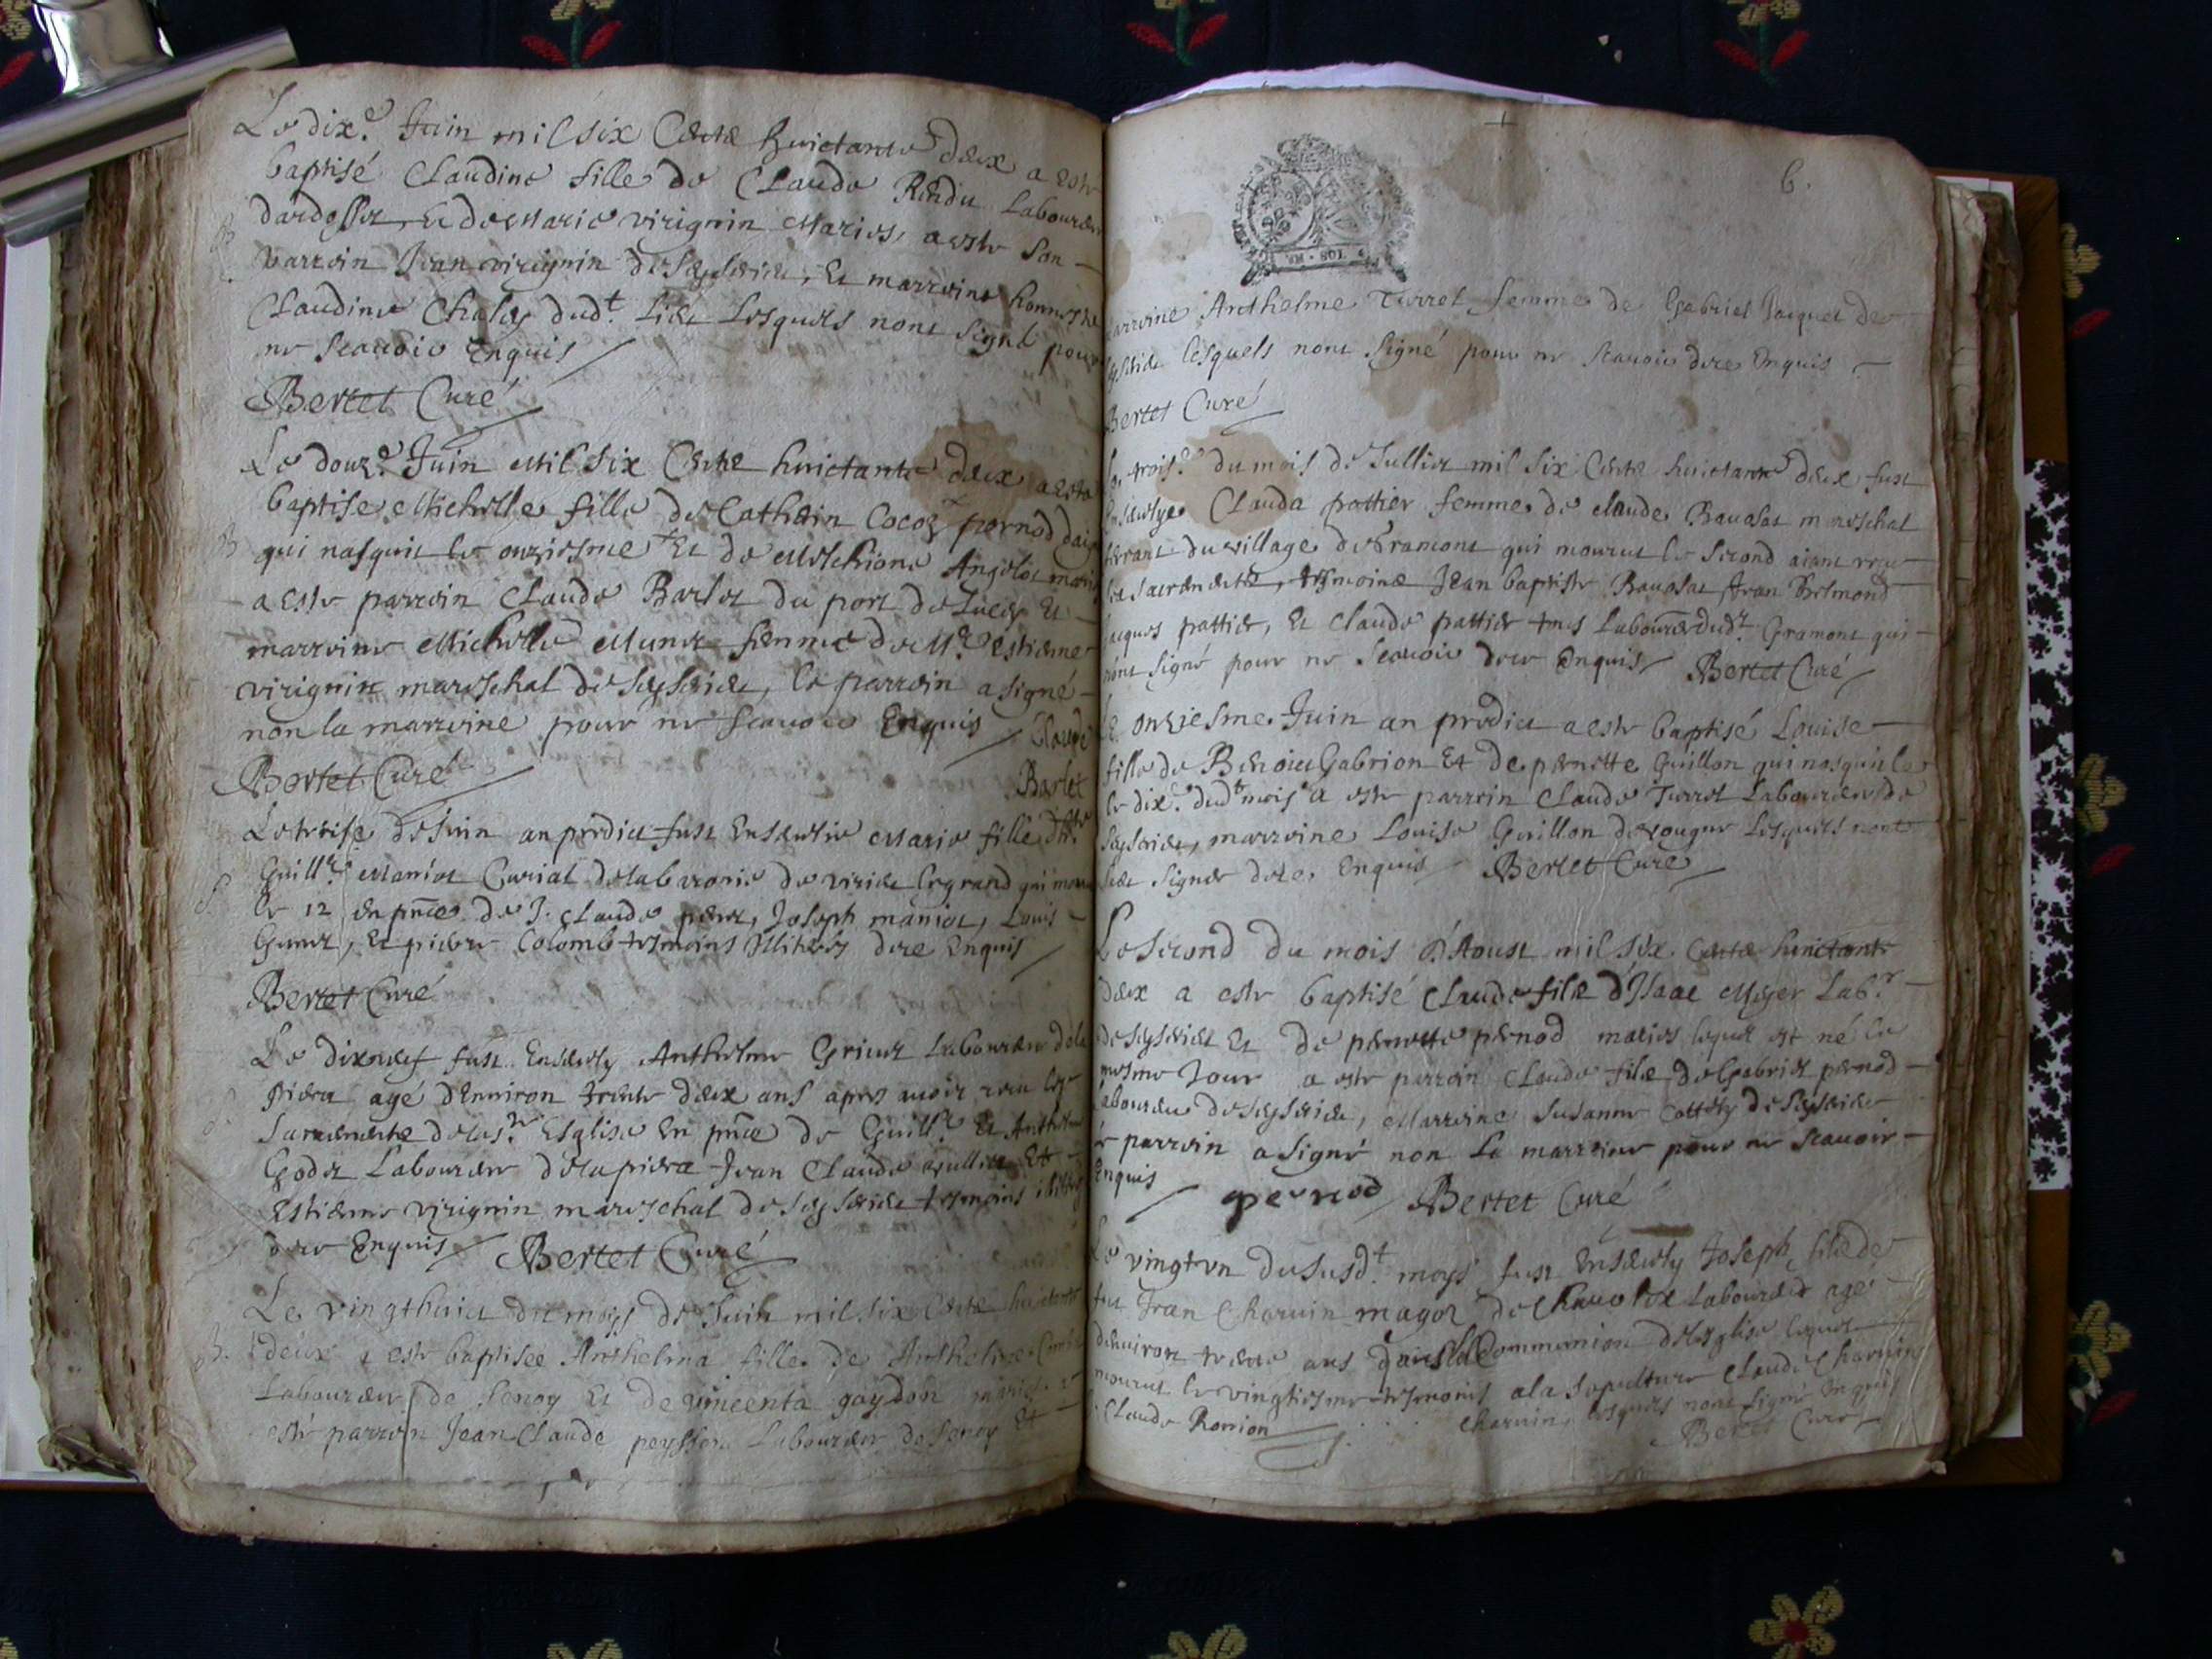 Le dix.e Juin mil six Cents huictante deux a este
baptisé Claudine fille de Claude Rendu Laboureur
dardosset et de Marie virignin Maries, a este son
parrein Jean virignin de Seyserieu, Et marreine honneste
Claudine Chaley dud.t lieu Lesquels nont signé pour
ne scauoir Enquis
Bertet Curé
Le douz.e Juin Mil six Cents huictante deux a este
baptise Michelle fille de Cathein Cocoz pernod
qui nasquit le onziesme Et de Angelot
a este parrein Claude Barlet du port de Lucey Et
marreine Michelle Munet femme de M.e Estienne
virignin mareschal de Seyserieu, le parrein a signé
non la marreine pour ne scauoir Enquis Claude
Bertet Curé Barlet
Le treise de Juin an predict fust Enseuelie Marie fille
Guill.e Maniot Curial de de virieu legrand qui
le 12 en pnce de J. Claude Joseph maniot, Louis
et pierre Colomb tesmoins Illiteres dere Enquis
Bertet Curé
Le dixneuf fust Enseuely Anthelme Laboureur dela
agé denuiron trente deux ans apres auoir receu les
Sacrements de Esglise en pnce de Guill.e Et Anthelme
Godet Laboureur Jean Claude Et
Estienne virignin mareschal de Seyserieu tesmoins
dere Enquis Bertet Curé
Le vingthuict du moys de Juin mil six Cents huictante
deux a este baptisee Anthelma fille de Anthelme
Laboureur de Senoy Et de vincenta gaydon
este parrein Jean Claude Laboureur de Senoy Et
6.
SOL
marreine Anthelme Turrel femme de Gabriel Jacquet de
Seyserieu lesquels nont signé pour ne scauoir dere Enquis
Bertet Curé
Le trois.e du mois de Jullier mil six Cents huictante deux fust
Enseuelye Clauda pattier femme de claude Rauasat mareschal
du village de Gramont qui mourut le second aiant receu
les sacrements, tesmoins Jean baptiste Rauasat Jean
Jacques pattier, Et claude pattier tous Laboureurs dud.t Gramont qui
nont signé pour ne Scauoir dere Enquis Bertet Curé
Le onziesme Juin an predict a este baptisé Louise
fille de Benoict Gabrion Et de pernette Guillon qui nasquit
le dix.e dud.t mois a este parrein Claude Turrel Laboureur de
Seyserieu, marreine Louise Guillon de vougne Lesquels nont
sceu signer dere Enquis Bertet Curé
Le second du mois D'Aoust mil six Cents huictante
deux a este baptisé Claude fils d'Isaac Meyer Lab.r
de Seyserieu Et De pernette pernod maries lequel est né le
mesme Jour a este parrein Claude fils de Gabriel pernod
laboureur de Seyserieu, Marreine Susanne de Seyserieu
le parrein a signé non La marreine pour ne scauoir
Enquis
pernod Bertet Curé
Le vingtvn du susd.t moys fust Enseuely Joseph fils de
feu Jean Charuin de Laboureur agé
denuiron trente ans Communion de lesglise lequel
mourut le vingtiesme tesmoins a la sepulture Claude Charuin
Claude Ronion Charuin lesquels nont signé Enquis
Bertet Curé